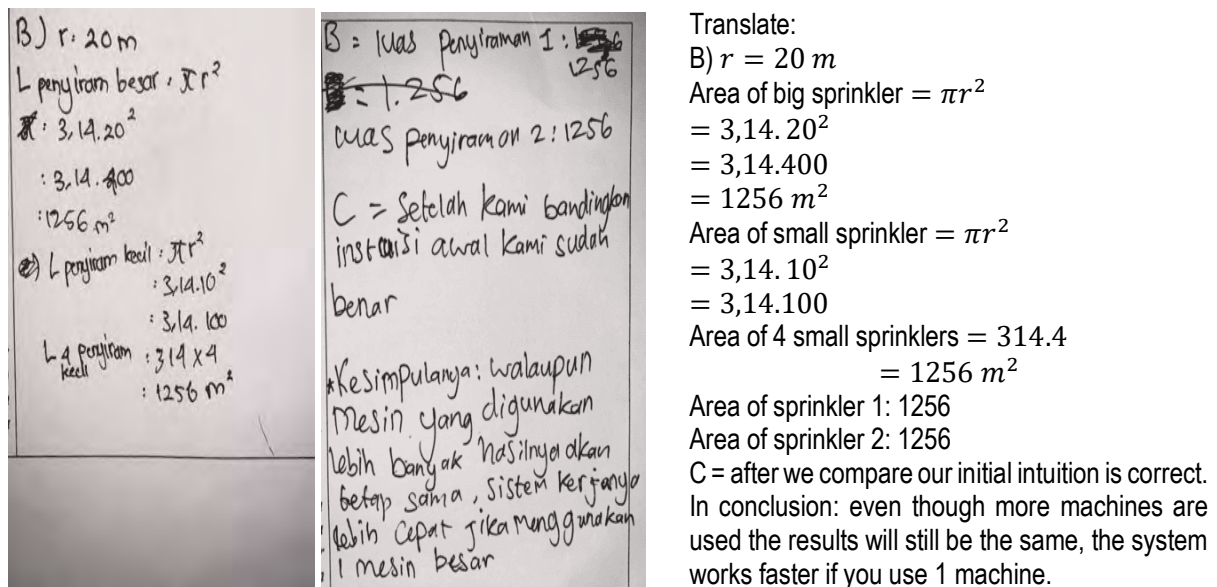 B) r : 20 m
L penyiram besar : πr²
: 3,14.20²
: 3,14.400
: 1256 m²
2) L penyiram kecil : πr²
: 3,14.10²
: 3,14.100
L 4 penyiram kecil : 314 x 4
: 1256 m²
B = luas penyiraman 1 :
1256
= 1.256
luas penyiraman 2 : 1256
C = Setelah kami bandingkan
instuisi awal kami sudah
benar
*Kesimpulanya : walaupun
mesin yang digunakan
lebih banyak hasilnya akan
tetap sama, sistem kerjanya
lebih cepat jika menggunakan
1 mesin besar
Translate:
B) r = 20 m
Area of big sprinkler = πr²
= 3,14. 20²
= 3,14.400
= 1256 m²
Area of small sprinkler = πr²
= 3,14. 10²
= 3,14.100
Area of 4 small sprinklers = 314.4
= 1256 m²
Area of sprinkler 1: 1256
Area of sprinkler 2: 1256
C = after we compare our initial intuition is correct.
In conclusion: even though more machines are
used the results will still be the same, the system
works faster if you use 1 machine.